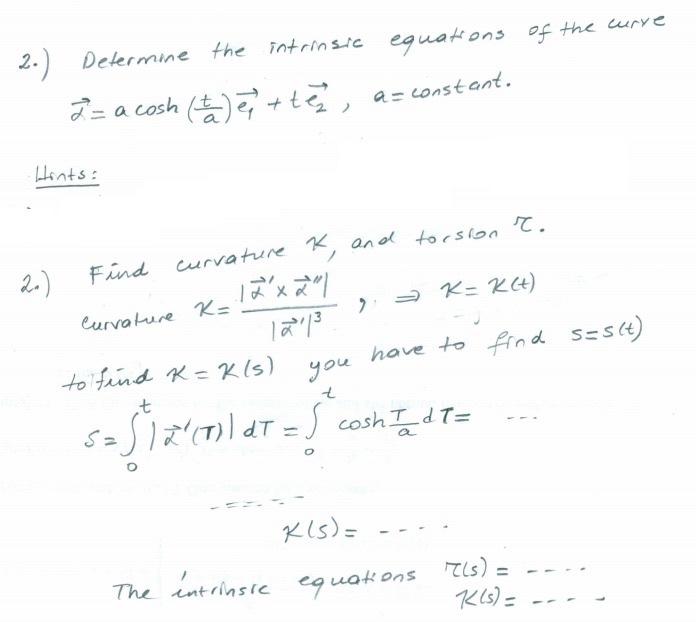 2.) Determine the intrinsic equations of the curve
α⃗ = a cosh (t/a) e₁⃗ + t e₂⃗ , a = constant.
Hints:
2.) Find curvature κ, and torsion τ.
Curvature κ = |α⃗' × α⃗''| / |α⃗'|³ , ⇒ κ = κ(t)
to find κ = κ(s) you have to find s = s(t)
s = ∫₀ᵗ |α⃗'(T)| dT = ∫₀ᵗ cosh T/a dT = ...
κ(s) = ----
The intrinsic equations τ(s) = -----
κ(s) = ----